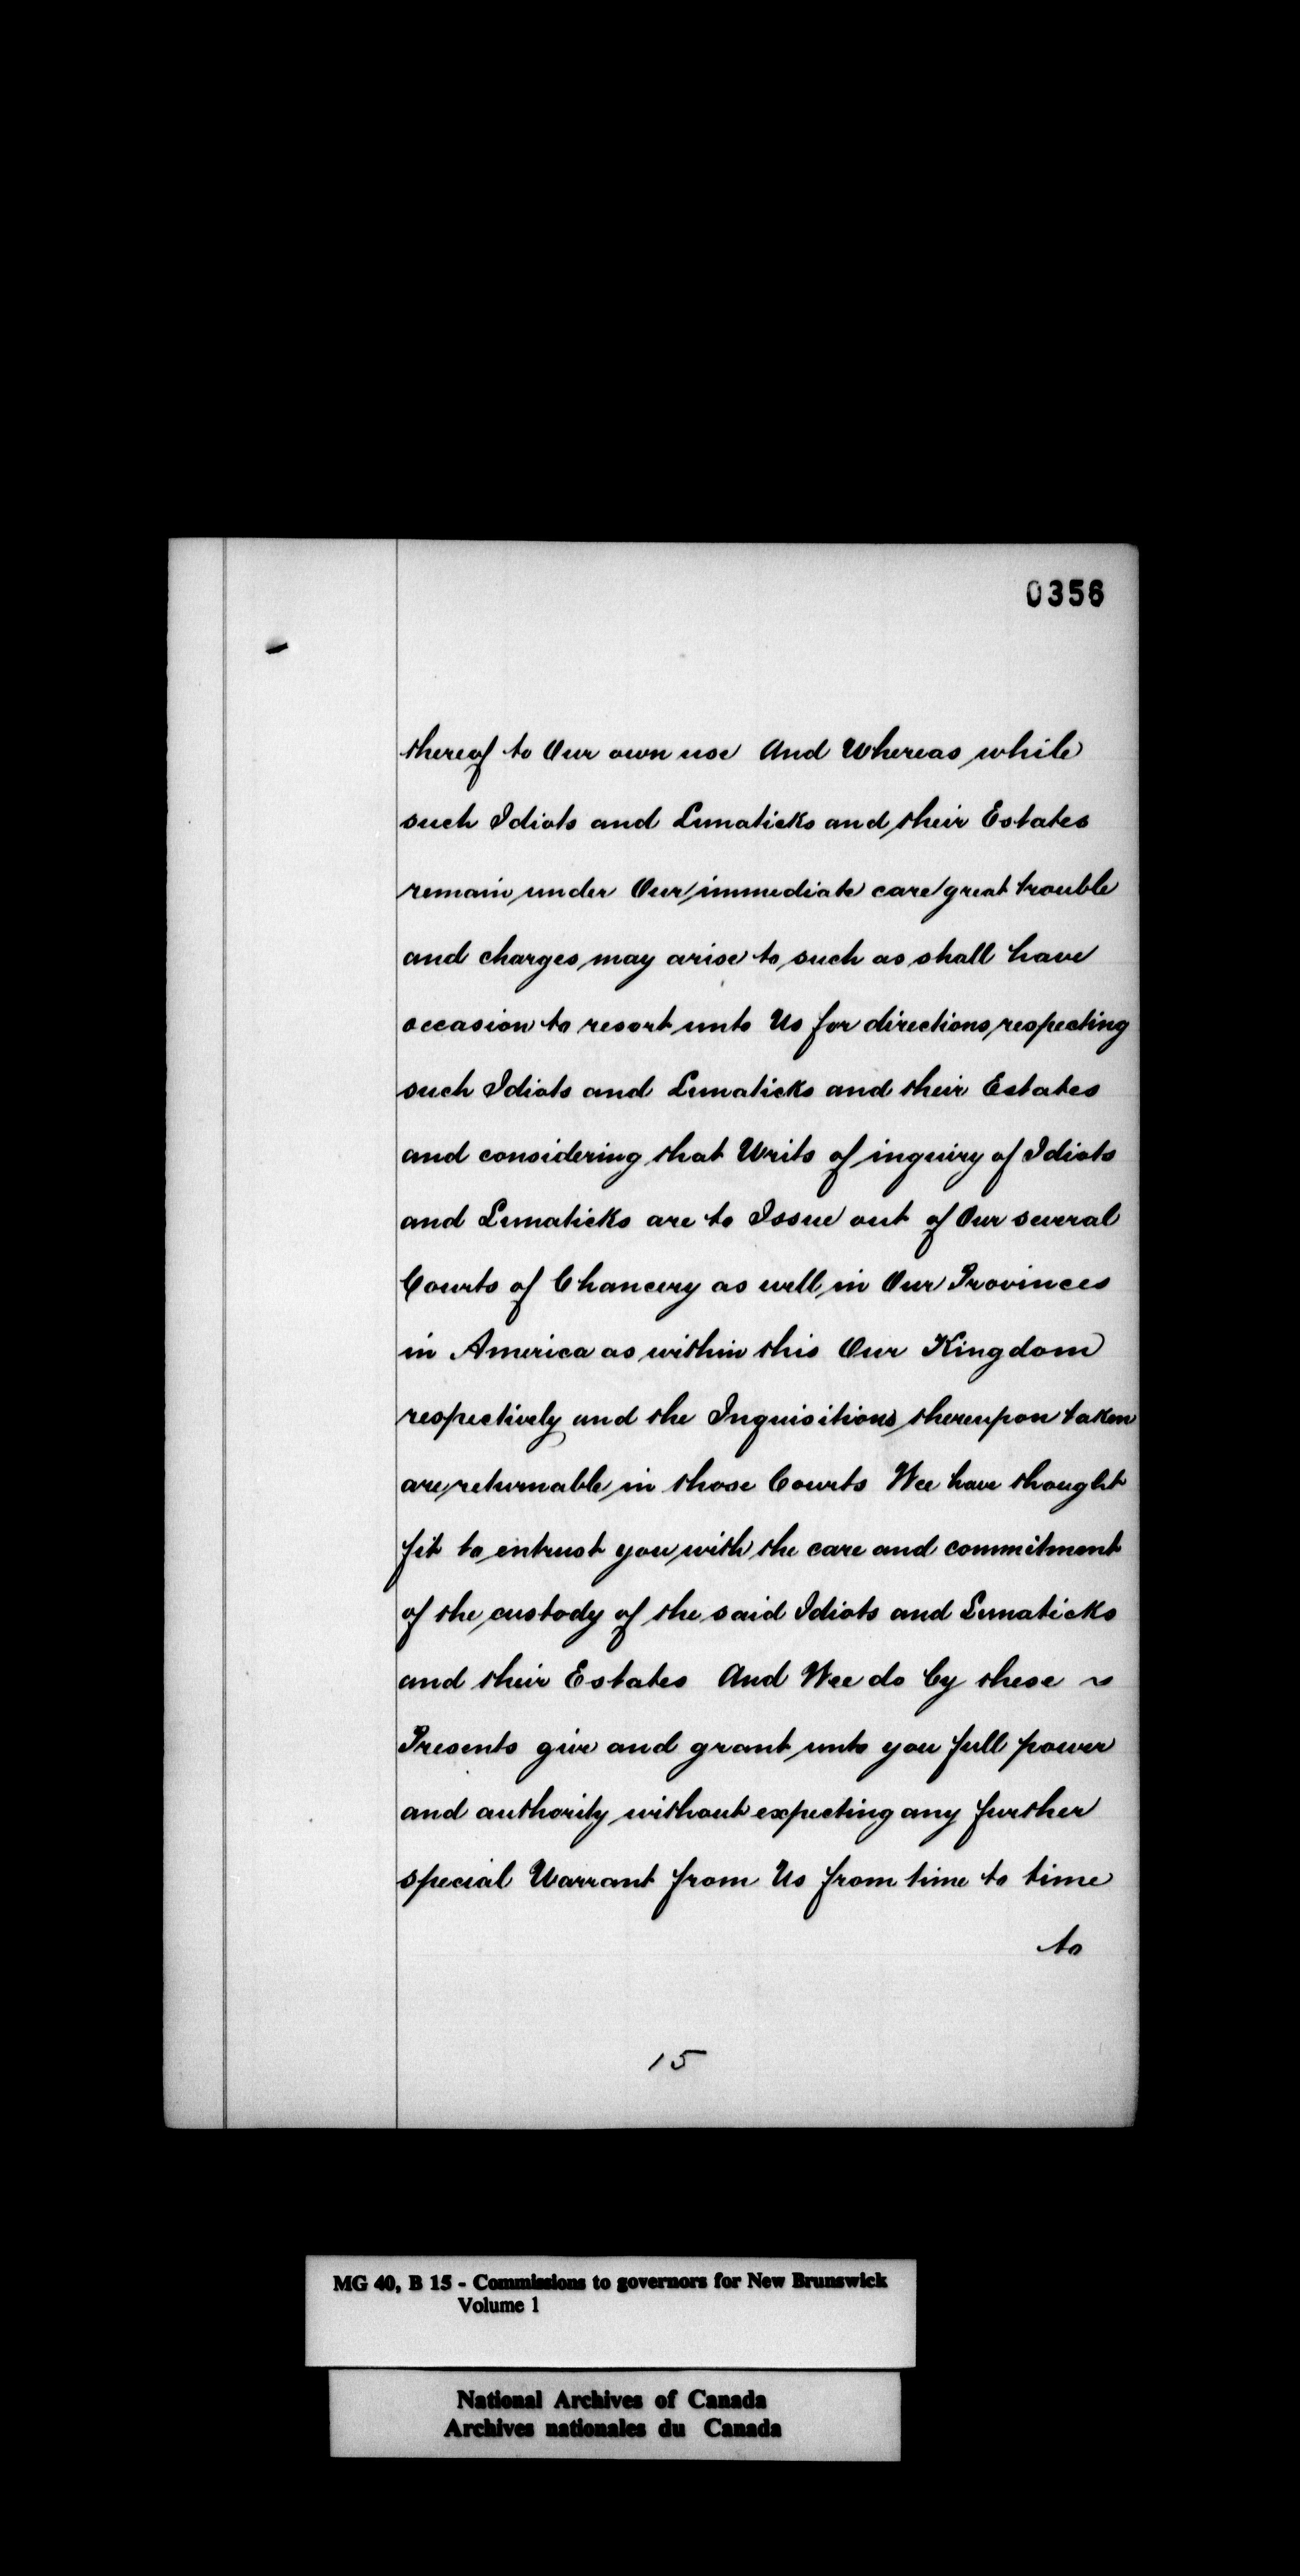 0356
thereof to Our own use And Whereas while
such Idiots and Lunaticks and their Estates
remain under Our immediate care great trouble
and charges may arise to such as shall have
occasion to resort unto Us for directions respecting
such Idiots and Lunaticks and their Estates
and considering that Writs of inquiry of Idiots
and Lunaticks are to Issue out of Our several
Courts of Chancery as well in Our Provinces
in America as within this Our Kingdom
respectively and the Inquisitions thereupon taken
are returnable in those Courts Wee have thought
fit to entrust you with the care and commitment
of the custody of the said Idiots and Lunaticks
and their Estates And Wee do by these ~
Presents give and grant unto you full power
and authority without expecting any further
special Warrant from Us from time to time
to
15
MG 40, B 15 - Commissions to governors for New Brunswick
Volume 1
National Archives of Canada
Archives nationales du Canada